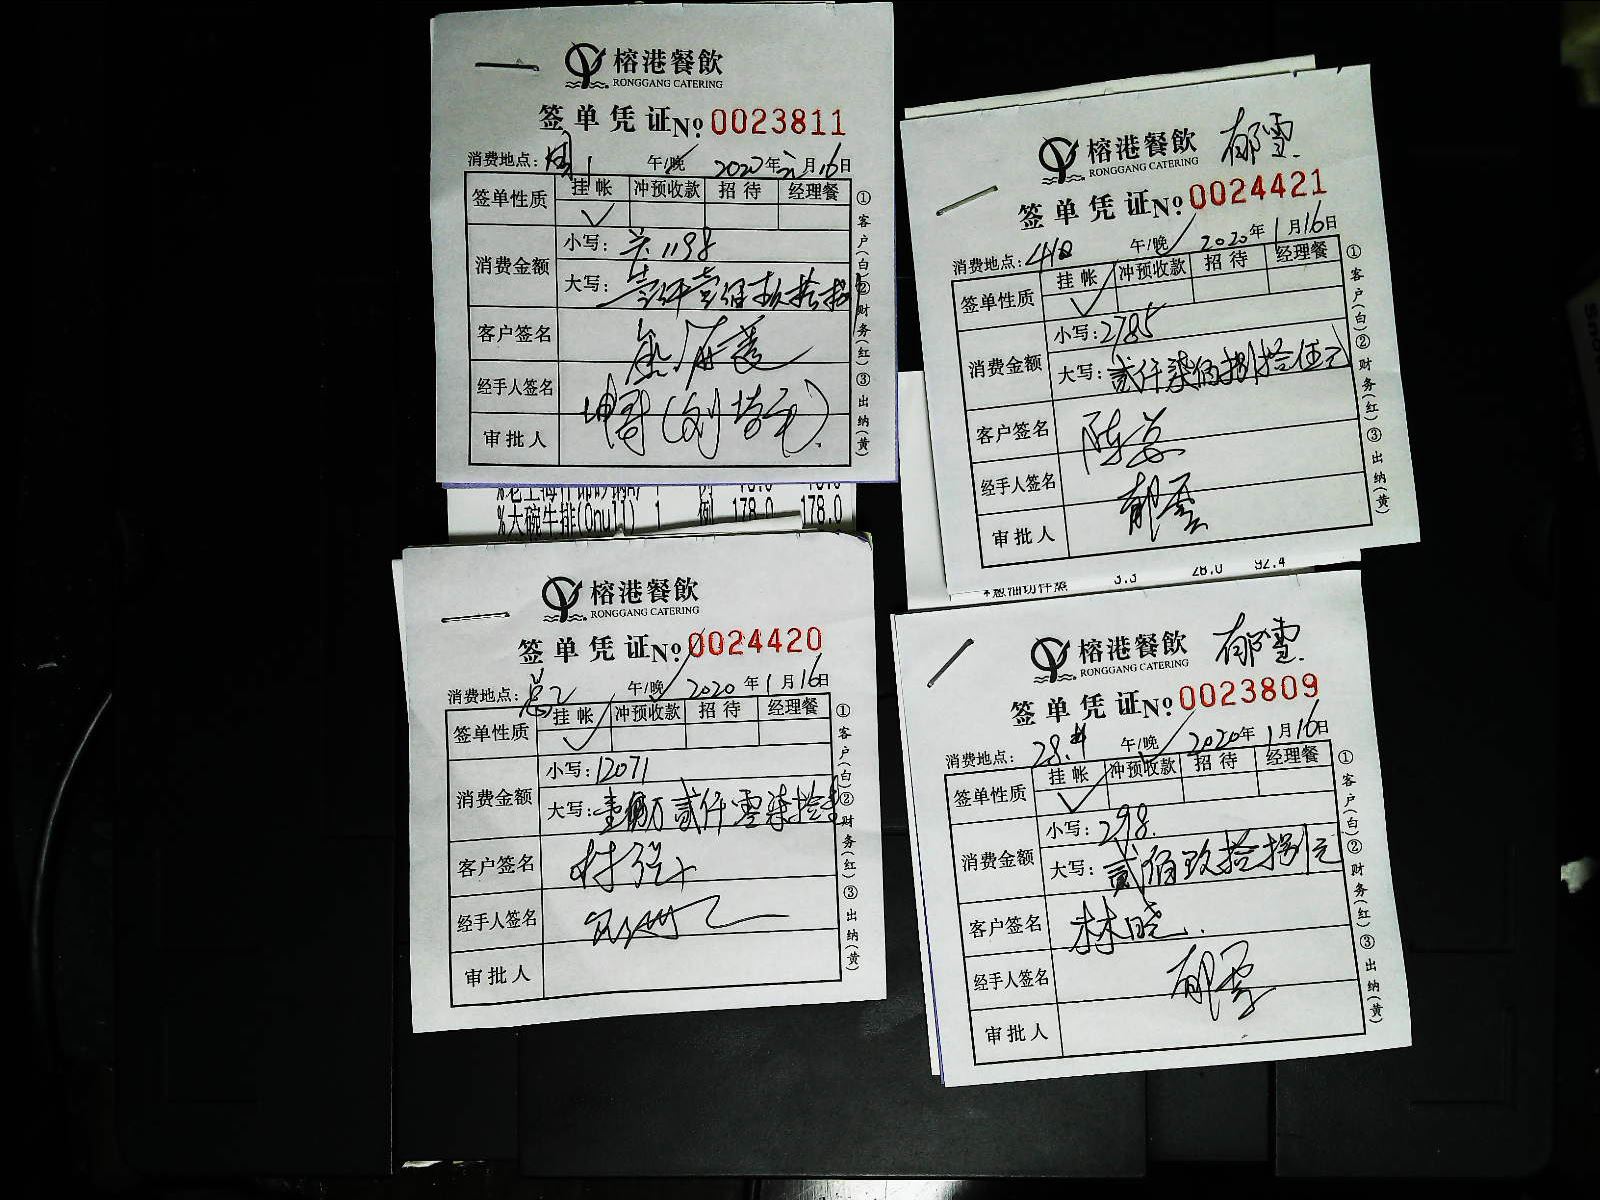 榕港餐飲
RONGGANG CATERING
签单凭证 № 0023811
消费地点: 午/晚 2020年 月16日
签单性质 挂帐 冲预收款 招待 经理餐
✓
消费金额 小写: 1198
大写: 壹仟壹佰玖拾捌
客户签名
经手人签名
审批人
①客户(白)②财务(红)③出纳(黄)
%大碗牛排(0null) 1 例 178.0 178.0
榕港餐飲 郁雪
RONGGANG CATERING
签单凭证 № 0024421
消费地点: 418 午/晚 2020年1月16日
签单性质 挂帐 冲预收款 招待 经理餐
✓
消费金额 小写: 2785
大写: 贰仟柒佰捌拾伍元
客户签名
经手人签名 郁雪
审批人
①客户(白)②财务(红)③出纳(黄)
3.3 28.0 92.4
榕港餐飲
RONGGANG CATERING
签单凭证 № 0024420
消费地点: 午/晚 2020年1月16日
签单性质 挂帐 冲预收款 招待 经理餐
✓
消费金额 小写: 12071
大写: 壹万贰仟零柒拾壹
客户签名
经手人签名
审批人
①客户(白)②财务(红)③出纳(黄)
榕港餐飲 郁雪
RONGGANG CATERING
签单凭证 № 0023809
消费地点: 28 午/晚 2020年1月16日
签单性质 挂帐 冲预收款 招待 经理餐
✓
消费金额 小写: 298.
大写: 贰佰玖拾捌元
客户签名 林晓
经手人签名 郁雪
审批人
①客户(白)②财务(红)③出纳(黄)